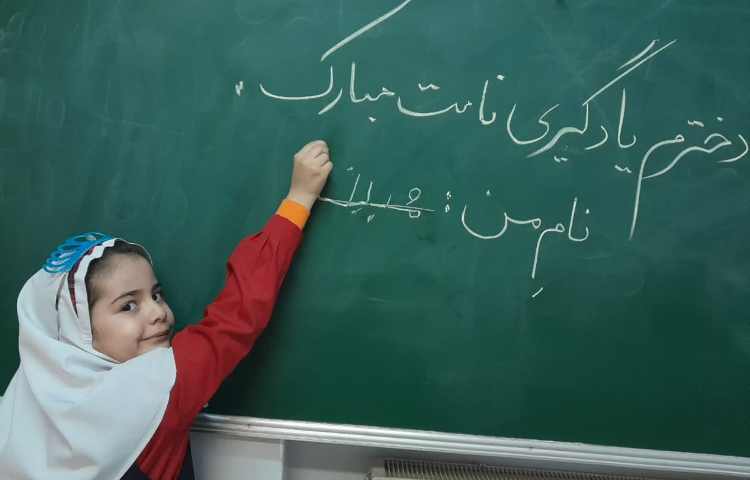 دخترم یادگیری نامت مبارک.
نامِ من: